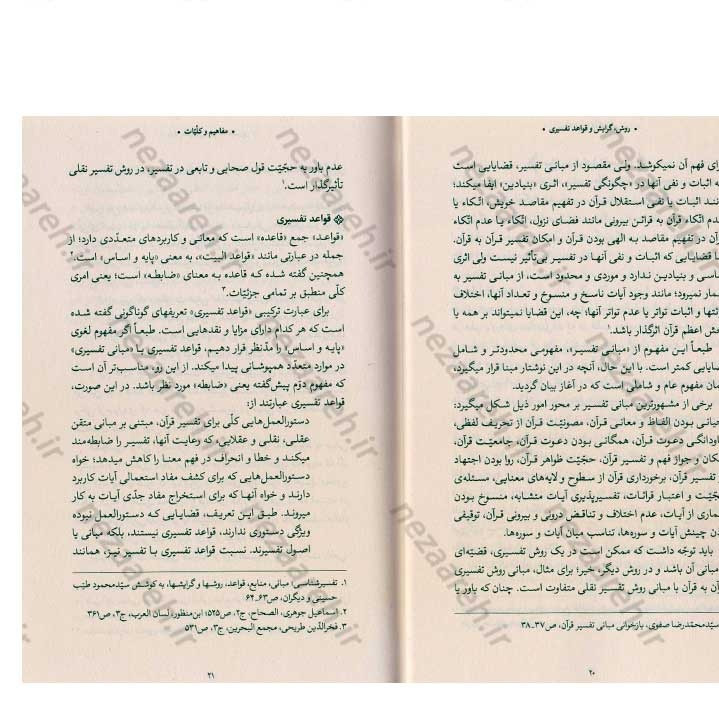 • روش، گرایش و قواعد تفسیری •
رای فهم آن نمیکوشد. ولی مقصود از مبانی تفسیر، قضایایی است
ه اثبات و نفی آنها در «چگونگی تفسیر»، اثری «بنیادین» ایفا میکند؛
نند اثبات یا نفی استقلال قرآن در تفهیم مقاصد خویش، اتّکاء یا
دم اتّکاء قرآن به قرائن بیرونی مانند فضای نزول، اتّکاء یا عدم اتّکاء
آن در تفهیم مقاصد به الهی بودن قرآن و امکان تفسیر قرآن به قرآن.
ا قضایایی که اثبات و نفی آنها در تفسیر بی‌تأثیر نیست ولی اثری
اسی و بنیادین ندارد و موردی و محدود است، از مبانی تفسیر به
مار نمیرود؛ مانند وجود آیات ناسخ و منسوخ و تعداد آنها، اختلاف
ئتها و اثبات تواتر یا عدم تواتر آنها؛ چه، این قضایا نمیتواند بر همه یا
ش اعظم قرآن اثرگذار باشد.۱
طبعاً این مفهوم از «مبانی تفسیر»، مفهومی محدودتر و شامل
ضایایی کمتر است. با این حال، آنچه در این نوشتار مبنا قرار میگیرد،
ان مفهوم عام و شاملی است که در آغاز بیان گردید.
برخی از مشهورترین مبانی تفسیر بر محور امور ذیل شکل میگیرد:
حیانی بودن الفاظ و معانی قرآن، مصونیّت قرآن از تحریف لفظی،
اودانگی دعوت قرآن، همگانی بودن دعوت قرآن، جامعیّت قرآن،
کان و جواز فهم و تفسیر قرآن، حجّیّت ظواهر قرآن، روا بودن اجتهاد
تفسیر قرآن، برخورداری قرآن از سطوح و لایه‌های معنایی، مسئله‌ی
جّیّت و اعتبار قرائات، تفسیرپذیری آیات متشابه، منسوخ بودن
ماری از آیات، عدم اختلاف و تناقض درونی و بیرونی قرآن، توقیفی
دن چینش آیات و سوره‌ها، تناسب میان آیات و سوره‌ها.
باید توجّه داشت که ممکن است در یک روش تفسیری، قضیّه‌ای
مبانی آن باشد و در روش دیگر، خیر؛ برای مثال، مبانی روش تفسیری
آن به قرآن با مبانی روش تفسیر نقلی متفاوت است. چنان که باور یا
سیّدمحمّدرضا صفوی، بازخوانی مبانی تفسیر قرآن، ص۳۷ـ۳۸
۲۰
• مفاهیم و کلّیّات •
عدم باور به حجّیّت قول صحابی و تابعی در تفسیر، در روش تفسیر نقلی
تأثیرگذار است.۱
قواعد تفسیری
«قواعد» جمع «قاعده» است که معانی و کاربردهای متعدّدی دارد؛ از
جمله در عبارتی مانند «قواعد البیت»، به معنی «پایه و اساس» است.۲
همچنین گفته شده که قاعده به معنای «ضابطه» است؛ یعنی امری
کلّی منطبق بر تمامی جزئیّات.۳
برای عبارت ترکیبی «قواعد تفسیری» تعریفهای گوناگونی گفته شده
است که هر کدام دارای مزایا و نقدهایی است. طبعاً اگر مفهوم لغوی
«پایه و اساس» را مدّنظر قرار دهیم، قواعد تفسیری با «مبانی تفسیری»
در موارد متعدّد همپوشانی پیدا میکند. از این رو، مناسب‌تر آن است
که مفهوم دوّم پیش‌گفته یعنی «ضابطه» مورد نظر باشد. در این صورت،
قواعد تفسیری عبارتند از:
دستورالعمل‌هایی کلّی برای تفسیر قرآن، مبتنی بر مبانی متقن
عقلی، نقلی و عقلایی، که رعایت آنها، تفسیر را ضابطه‌مند
میکند و خطا و انحراف در فهم معنا را کاهش میدهد؛ خواه
دستورالعمل‌هایی که برای کشف مفاد استعمالی آیات کاربرد
دارند و خواه آنها که برای استخراج مفاد جدّی آیات به کار
میروند. طبق این تعریف، قضایایی که دستورالعمل نبوده
ویژگی دستوری ندارند، قواعد تفسیری نیستند، بلکه مبانی یا
اصول تفسیرند. نسبت قواعد تفسیری با تفسیر نیز، همانند
۱. تفسیرشناسی؛ مبانی، منابع، قواعد، روشها و گرایشها، به کوشش سیّدمحمود طیّب
حسینی و دیگران، ص۶۳ـ۶۴
۲. اسماعیل جوهری، الصحاح، ج۲، ص۵۲۵؛ ابن‌منظور، لسان العرب، ج۳، ص۳۶۱
۳. فخرالدّین طریحی، مجمع البحرین، ج۳، ص۵۳۱
۲۱
nezaareh.ir